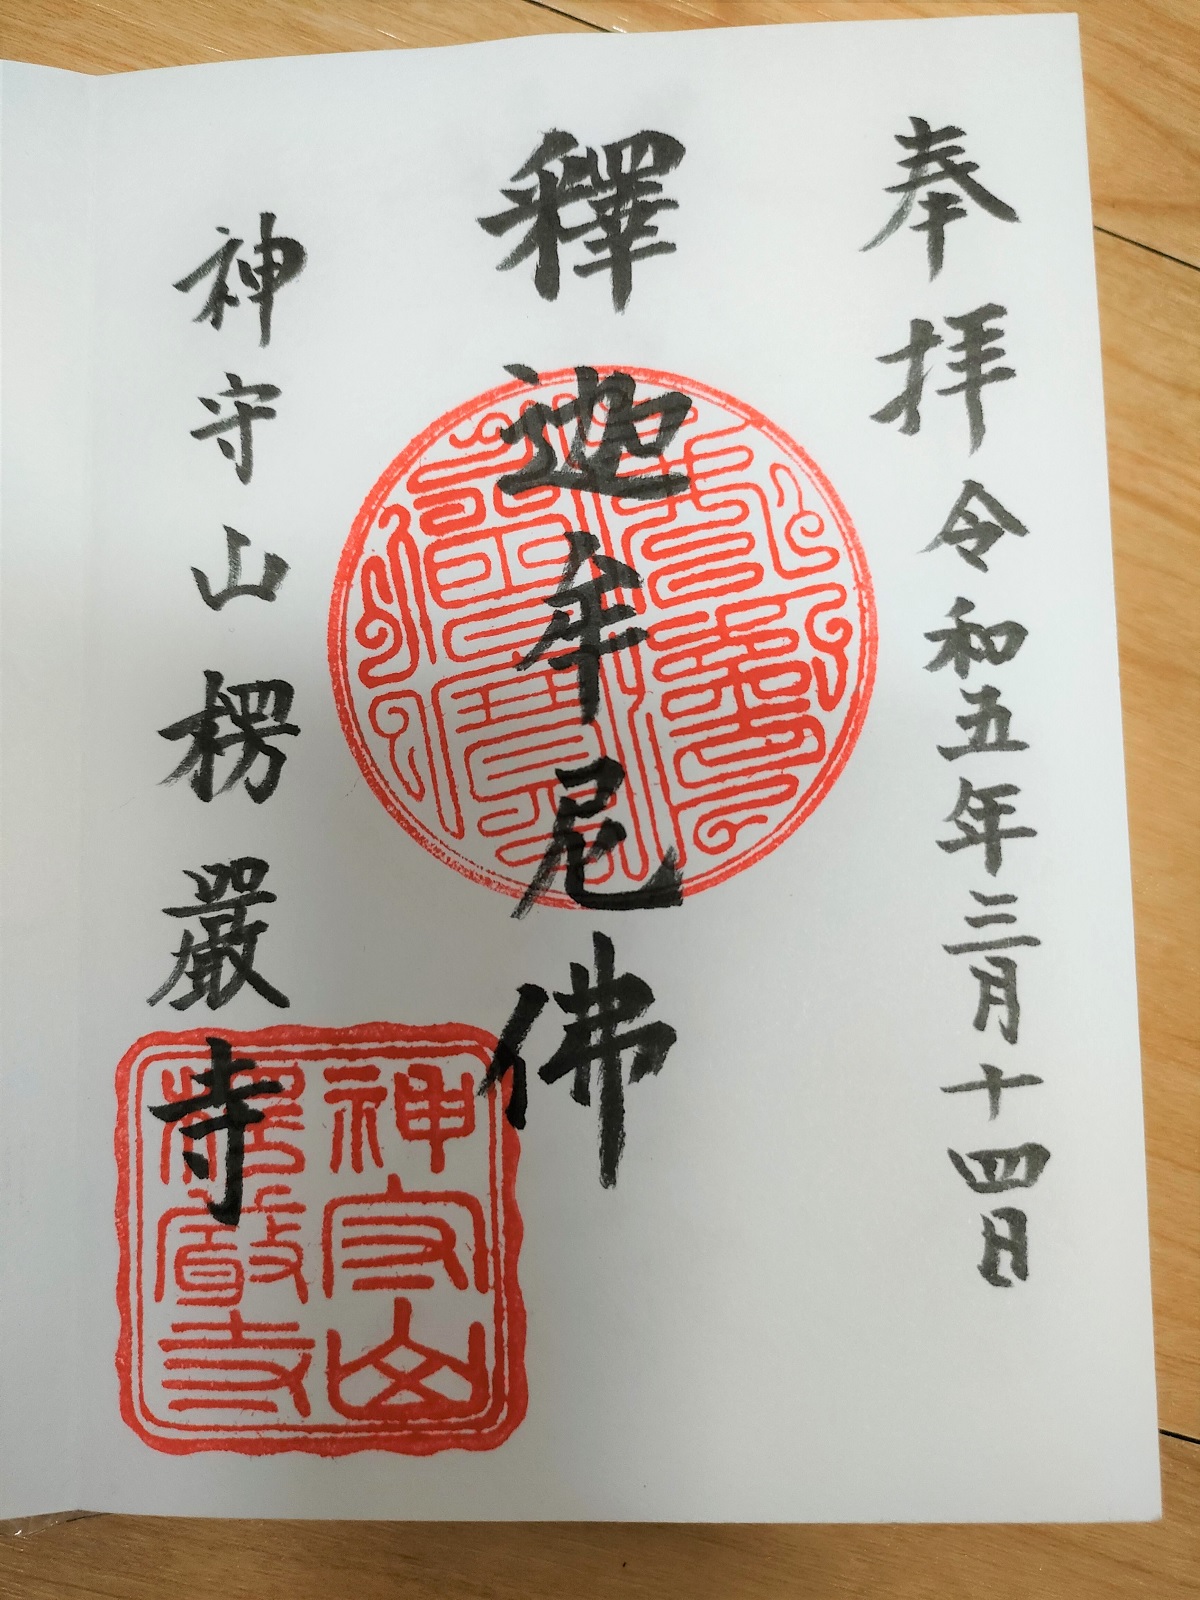 奉拝 令和五年三月十四日
釋迦牟尼佛
神守山楞嚴寺
神守山
楞嚴寺